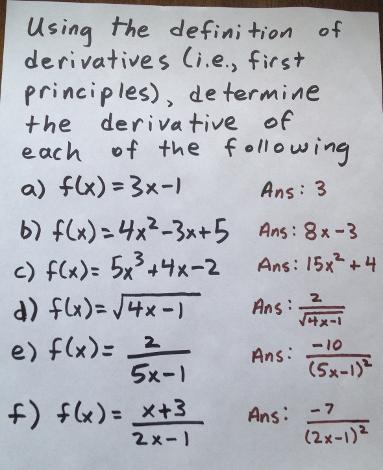 Using the definition of
derivatives (i.e., first
principles), determine
the derivative of
each of the following
a) f(x) = 3x-1 Ans: 3
b) f(x) = 4x²-3x+5 Ans: 8x-3
c) f(x) = 5x³+4x-2 Ans: 15x²+4
d) f(x) = √(4x-1) Ans: 2/√(4x-1)
e) f(x) = 2/(5x-1) Ans: -10/(5x-1)²
f) f(x) = (x+3)/(2x-1) Ans: -7/(2x-1)²